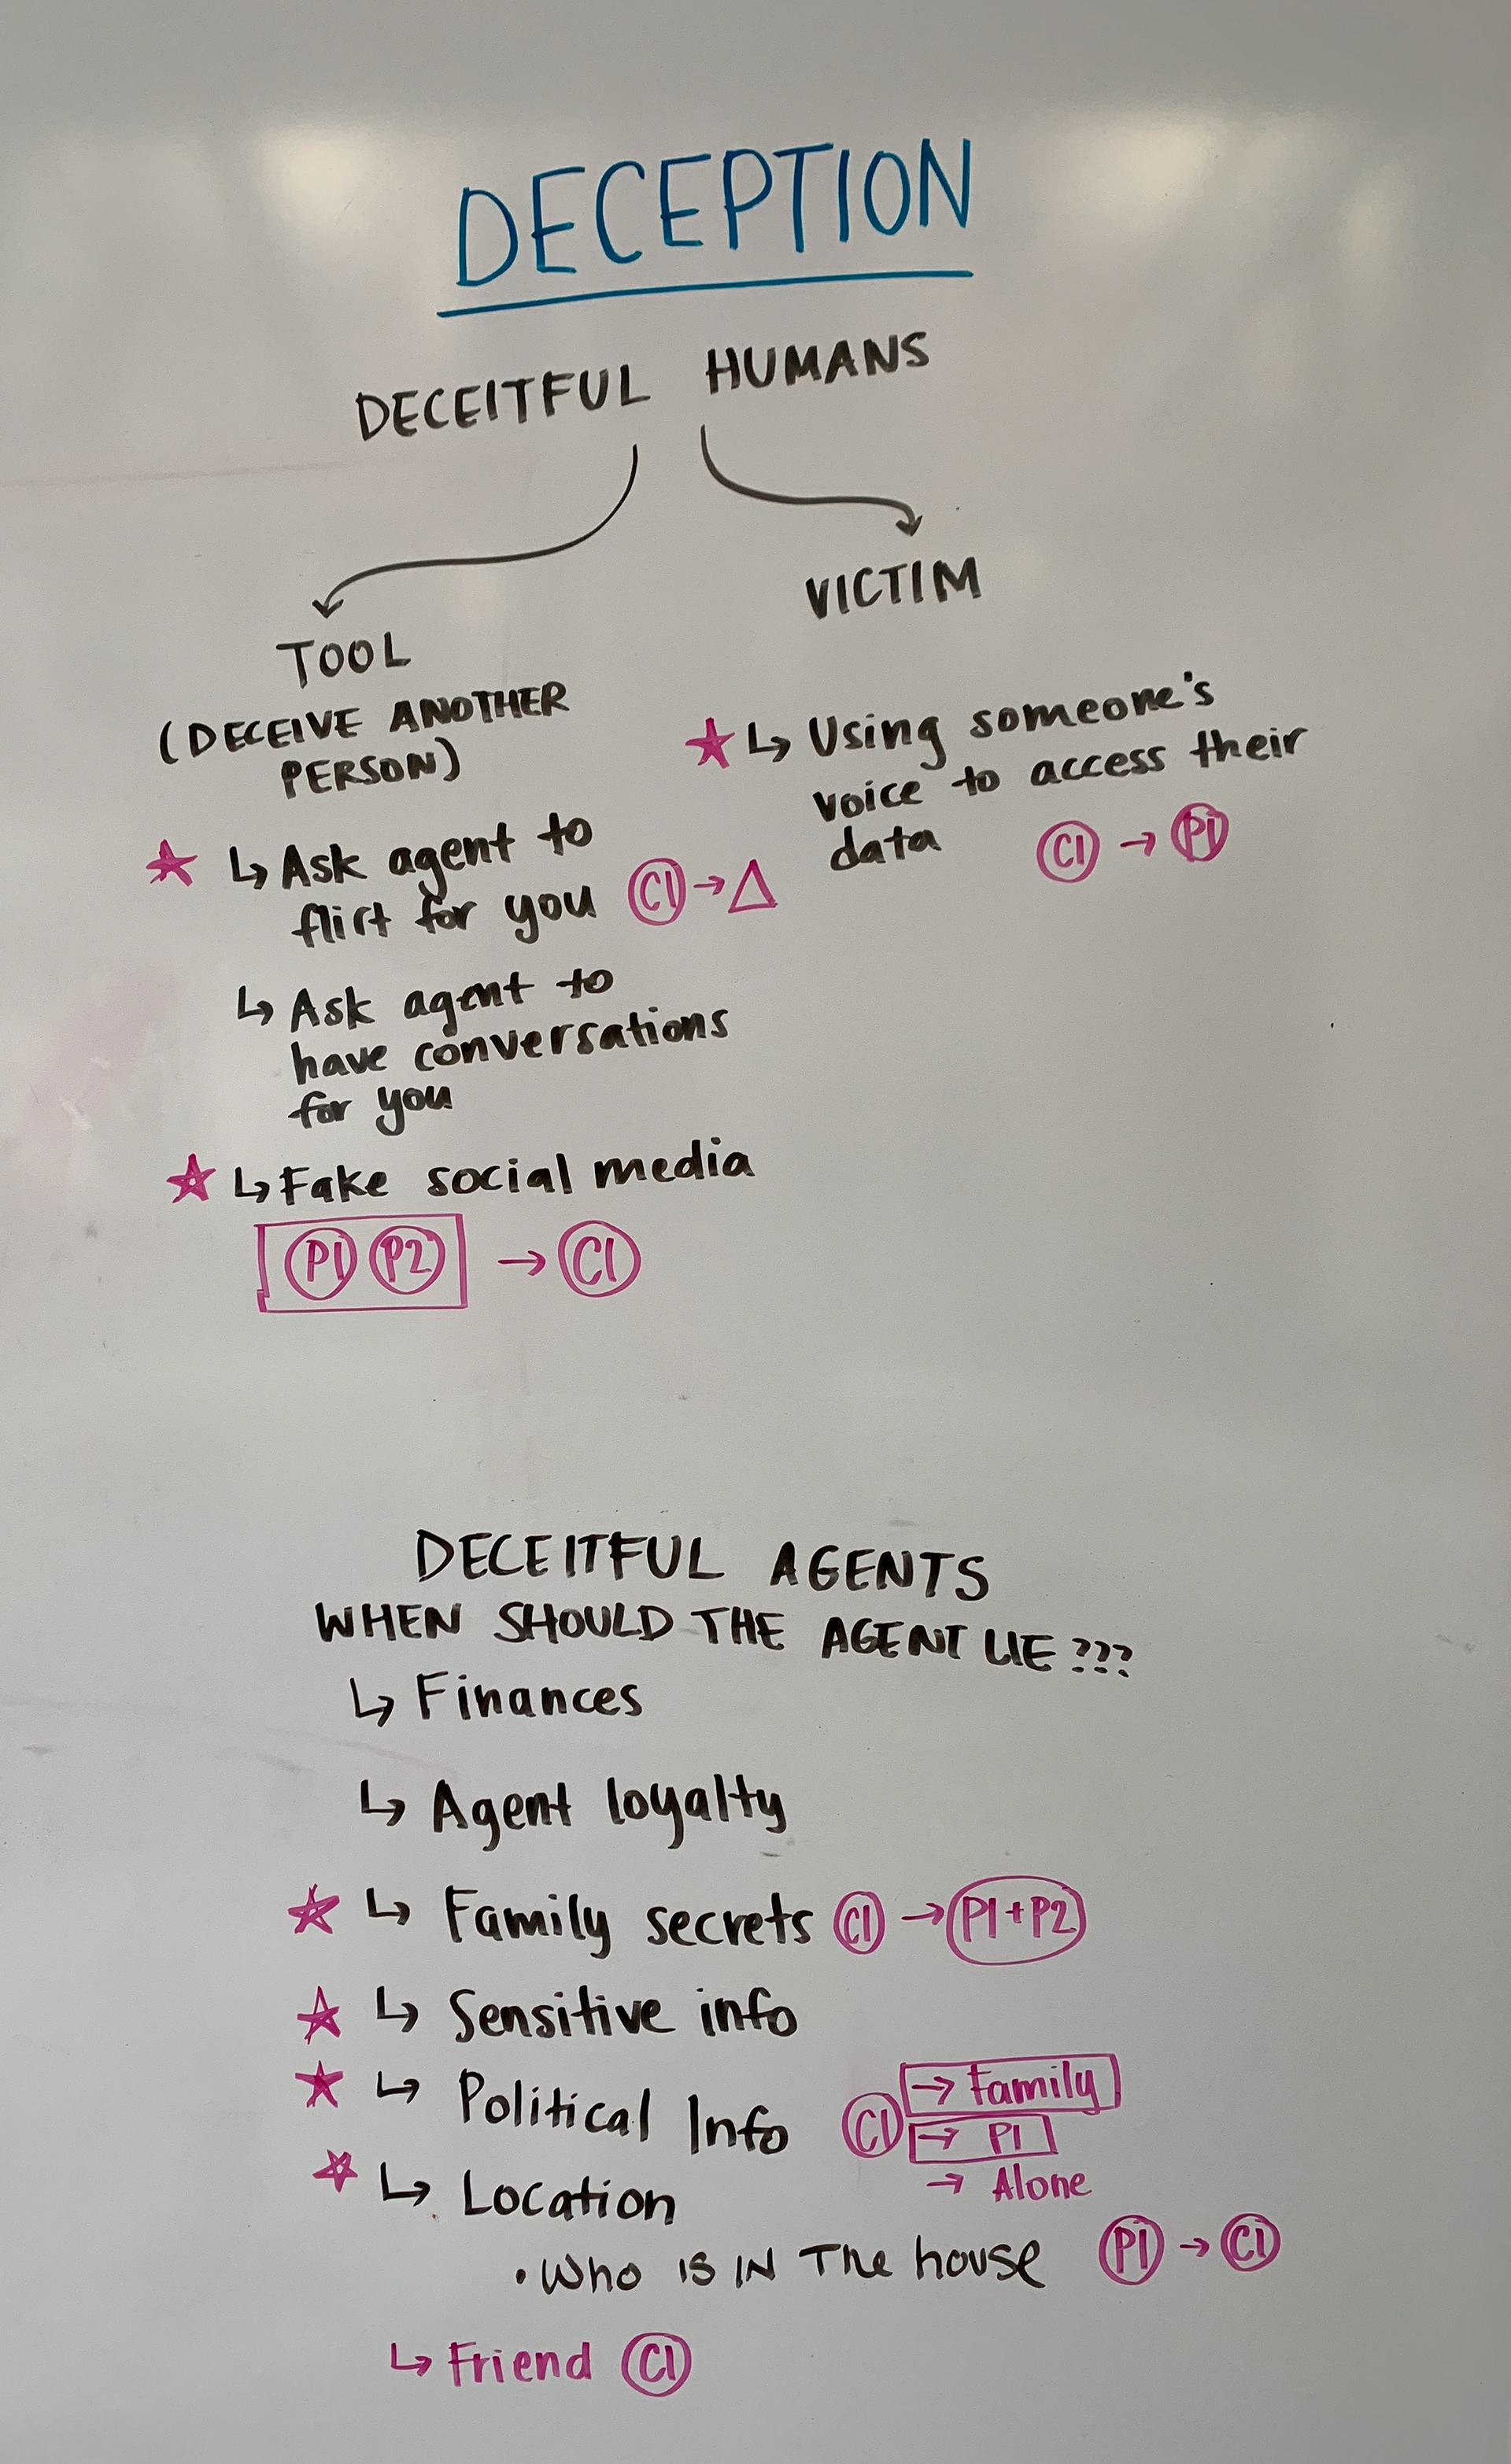 DECEPTION
DECEITFUL HUMANS
TOOL
(DECEIVE ANOTHER
PERSON)
↳ Ask agent to
flirt for you C1 → △
↳ Ask agent to
have conversations
for you
↳ Fake social media
P1 P2 → C1
VICTIM
↳ Using someone's
voice to access their
data C1 → P1
DECEITFUL AGENTS
WHEN SHOULD THE AGENT LIE ???
↳ Finances
↳ Agent loyalty
↳ Family secrets C1 → P1+P2
↳ Sensitive info
↳ Political Info C1 → Family
→ P1
→ Alone
↳ Location
• Who IS IN The house P1 → C1
↳ Friend C1